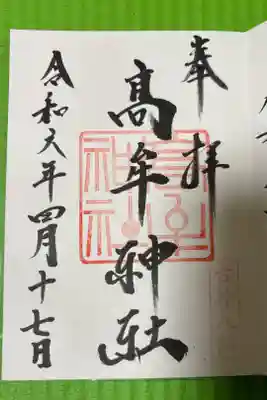 奉拝
高牟神社
令和六年四月十七日